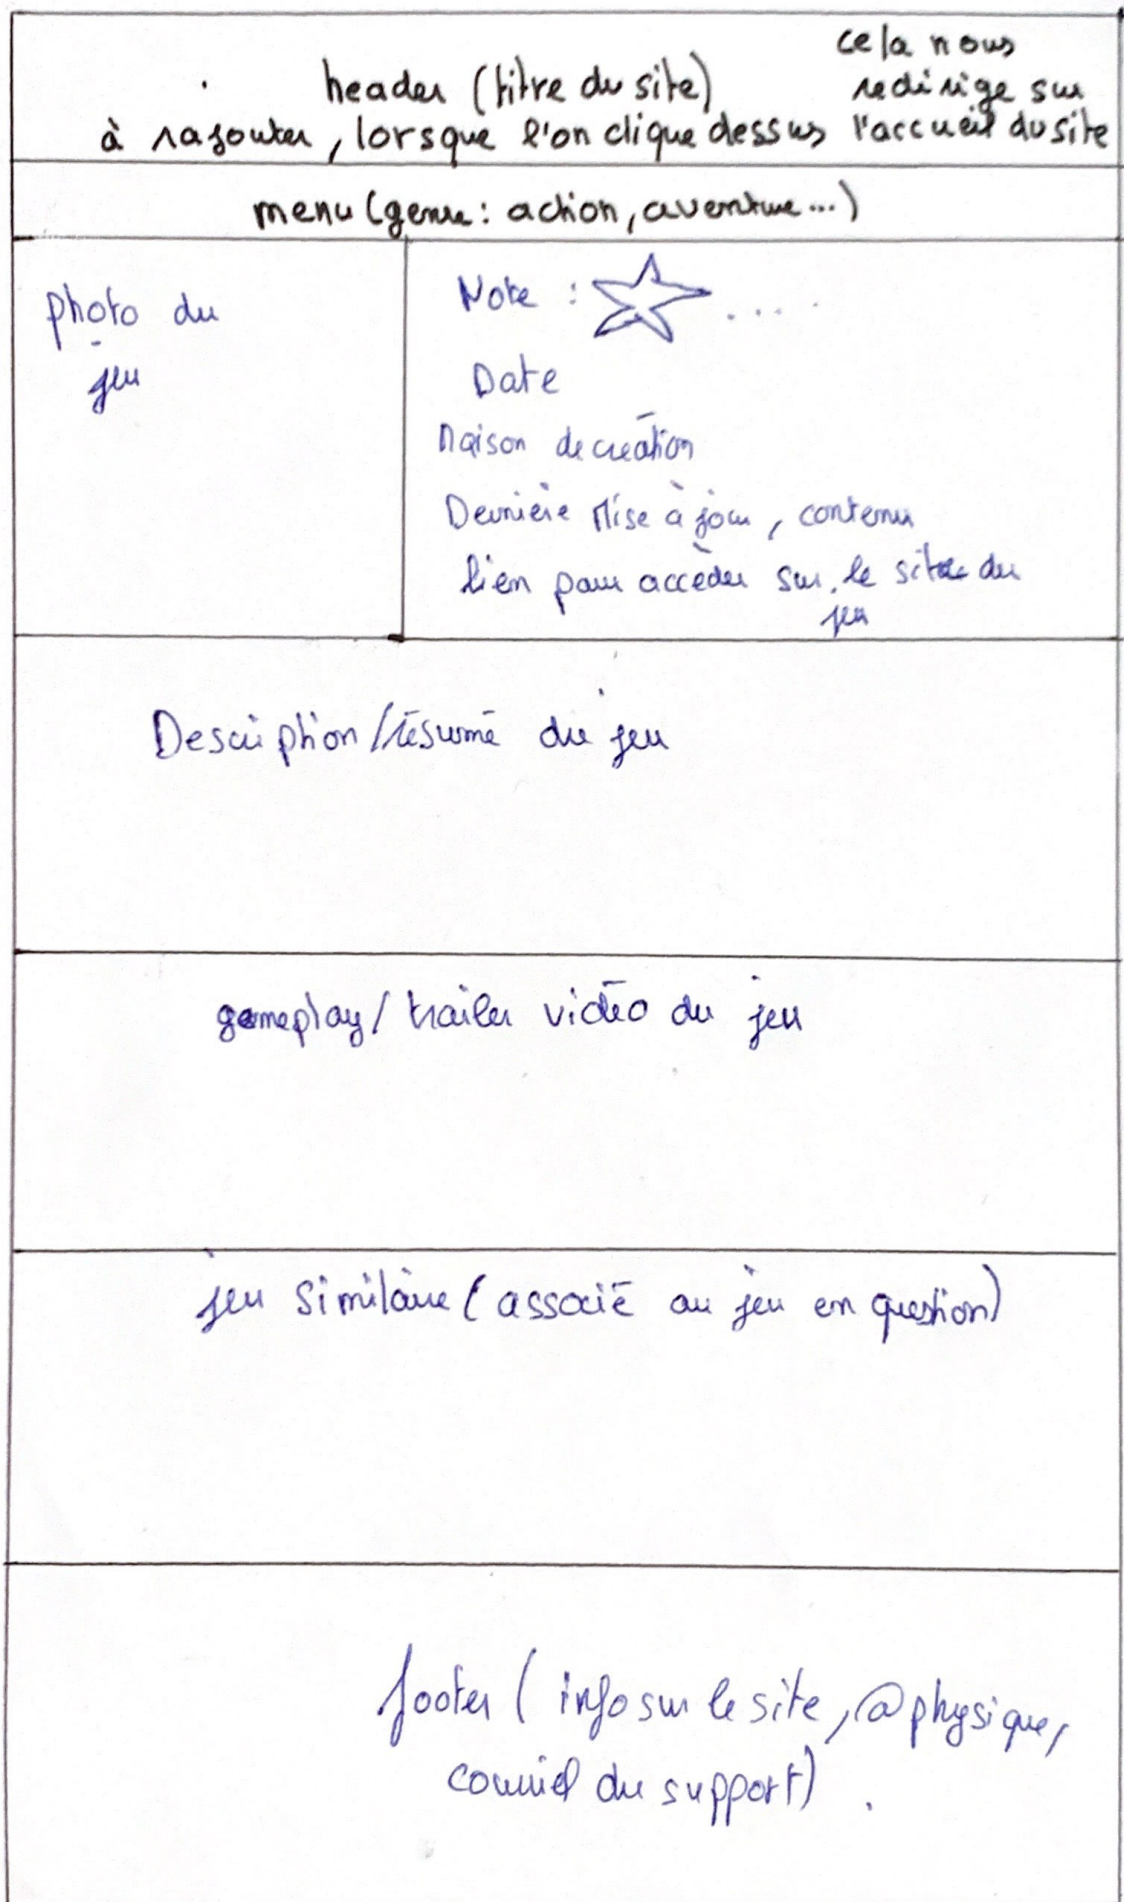 header (titre du site)
cela nous
redirige sur
à rajouter, lorsque l'on clique dessus l'accueil du site
menu (genre : action, aventure...)
photo du
jeu
Note : ....
Date
Maison de création
Dernière Mise à jour, contenu
lien pour accèder sur le site du
jeu
Description/résumé du jeu
gameplay/trailer vidéo du jeu
jeu similaire (associé au jeu en question)
footer (info sur le site, @physique,
courriel du support).